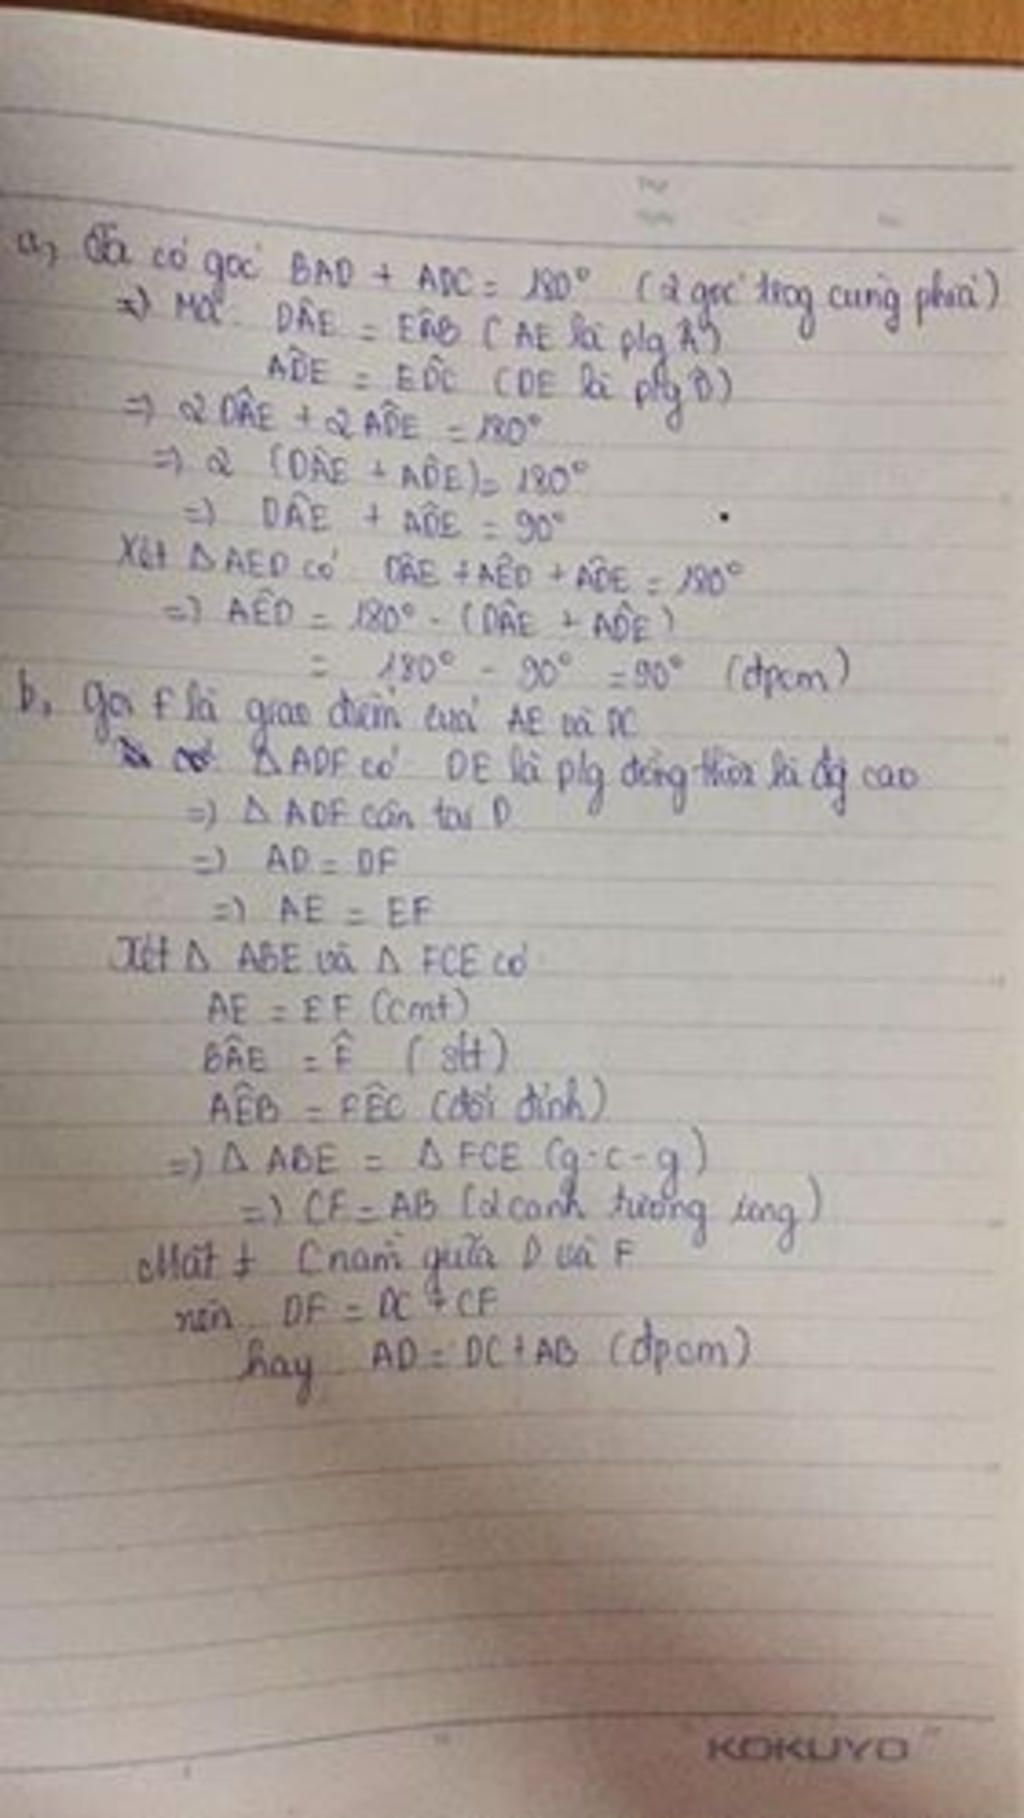 a, Ta có góc BAD + ADC = 180° (2 góc trog cùng phía)
=) Mà DÂE = EÂB ( AE là plg Â)
AD̂E = ED̂C (DE là plg D̂)
=) 2 DÂE + 2 AD̂E = 180°
=) 2 (DÂE + AD̂E) = 180°
=) DÂE + AD̂E = 90°
Xét Δ AED có DÂE + AÊD + AD̂E = 180°
=) AÊD = 180° - (DÂE + AD̂E)
= 180° - 90° = 90° (đpcm)
b, Gọi F là giao điểm của AE và DC
Δ ADF có DE là plg đồng thời là đg cao
=) Δ ADF cân tại D
=) AD = DF
=) AE = EF
Xét Δ ABE và Δ FCE có
AE = EF (cmt)
BÂE = F̂ ( slt)
AÊB = FÊC (đối đỉnh)
=) Δ ABE = Δ FCE (g-c-g)
=) CF = AB (2 cạnh tương ứng)
Mặt ≠ C nằm giữa D và F
nên DF = DC + CF
hay AD = DC + AB (đpcm)
KOKUYO